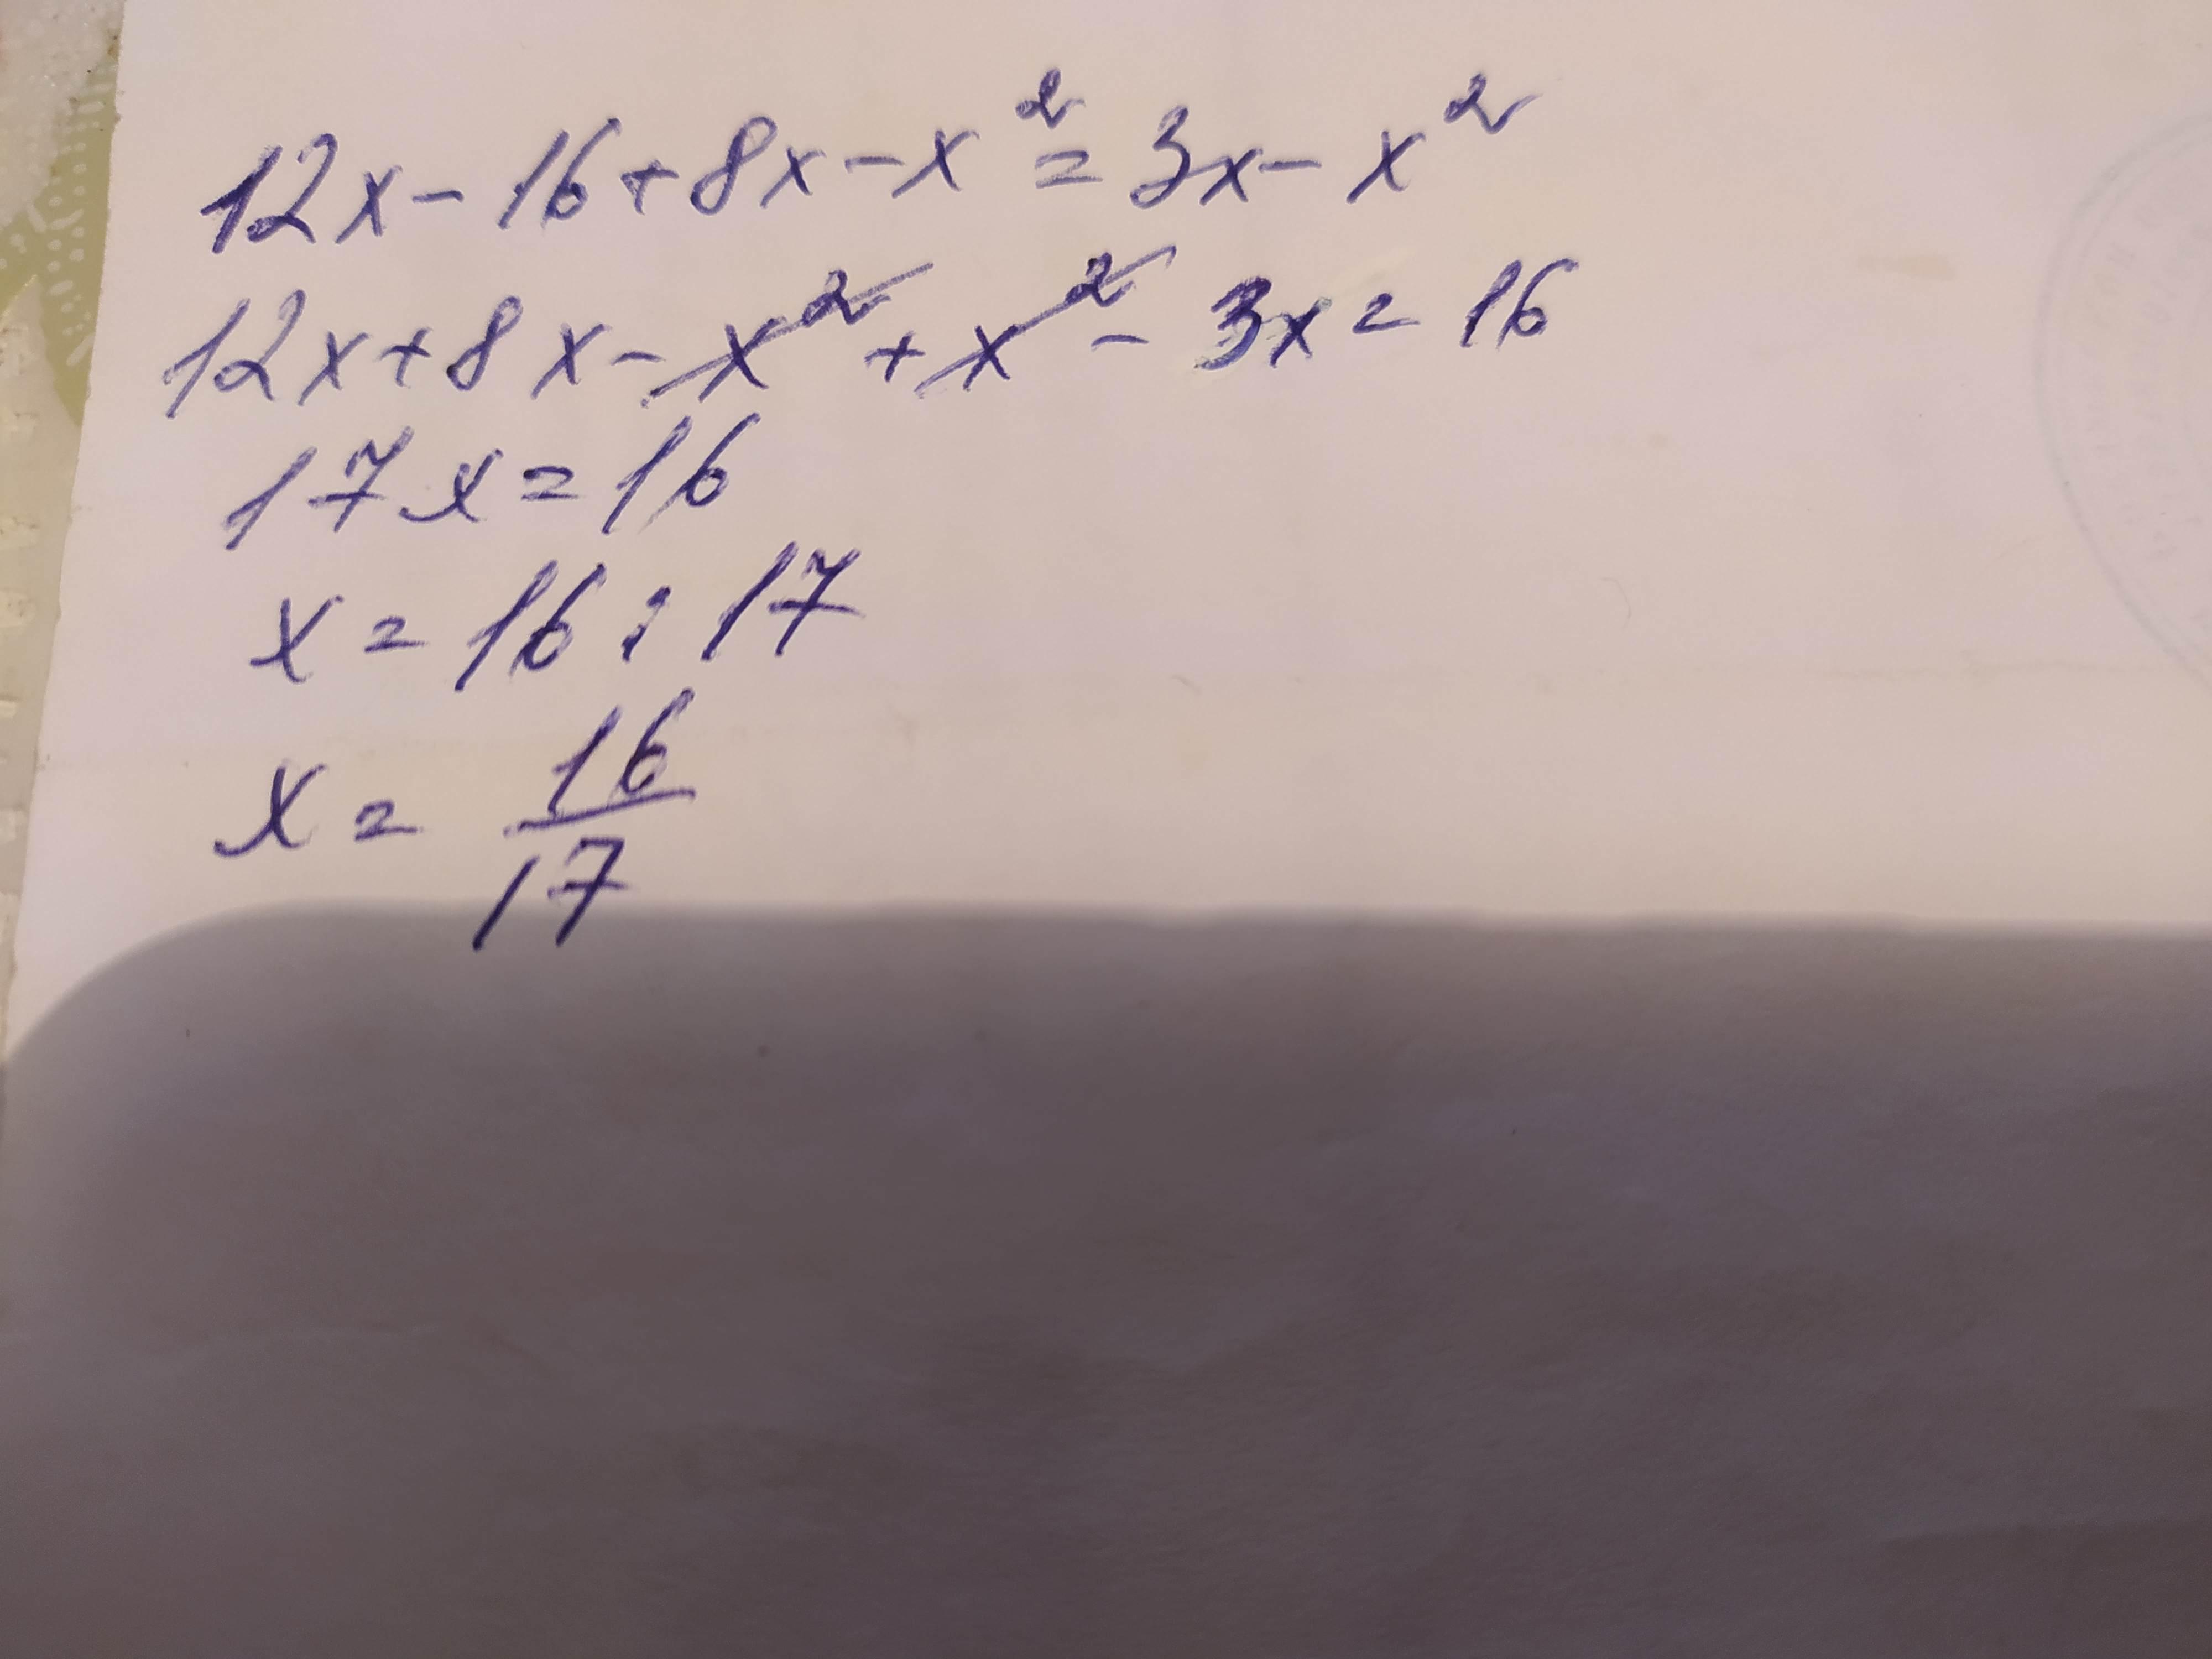 12x - 16 + 8x - x² = 3x - x²
12x + 8x - x² + x² - 3x = 16
17x = 16
x = 16 : 17
x = 16/17